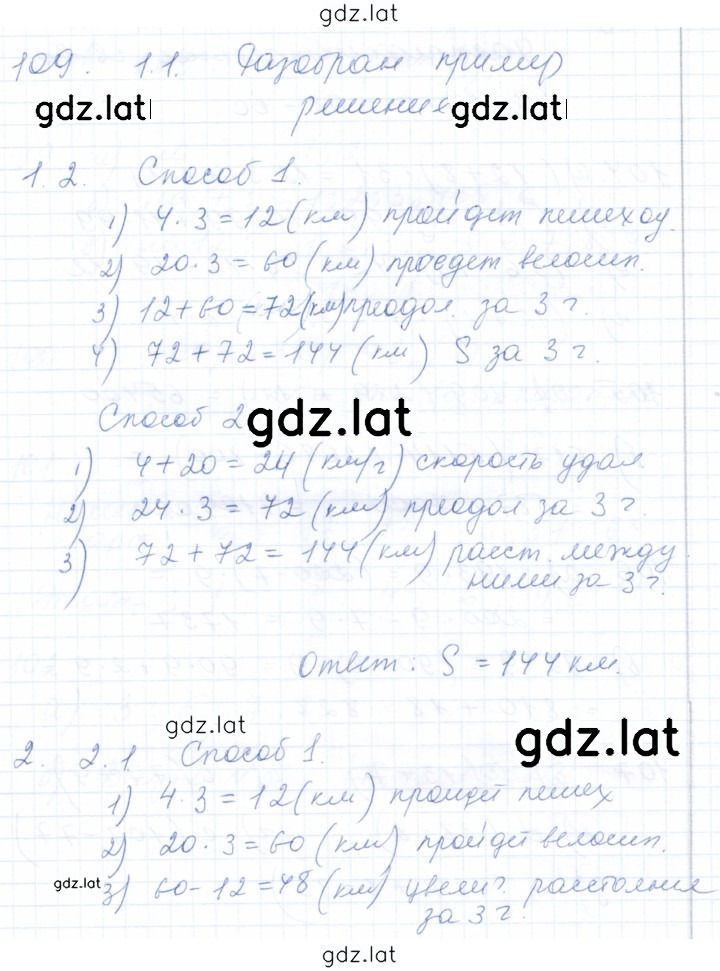 gdz.lat
109. 1.1. Разобран пример
gdz.lat gdz.lat
решения
1.2. Способ 1.
1) 4·3=12(км) пройдет пешеход.
2) 20·3=60(км) проедет велосип.
3) 12+60=72(км) преодол. за 3 ч.
4) 72+72=144(км) S за 3 ч.
Способ 2
gdz.lat
1) 4+20=24(км/ч) скорость удал.
2) 24·3=72(км) преодол за 3 ч.
3) 72+72=144(км) расст. между
ними за 3 ч.
Ответ: S=144 км.
gdz.lat
gdz.lat
2. 2.1 Способ 1.
1) 4·3=12(км) пройдет пешех
2) 20·3=60(км) пройдет велосип.
gdz.lat
3) 60-12=48(км) увелич. расстояния
за 3 ч.
gdz.lat